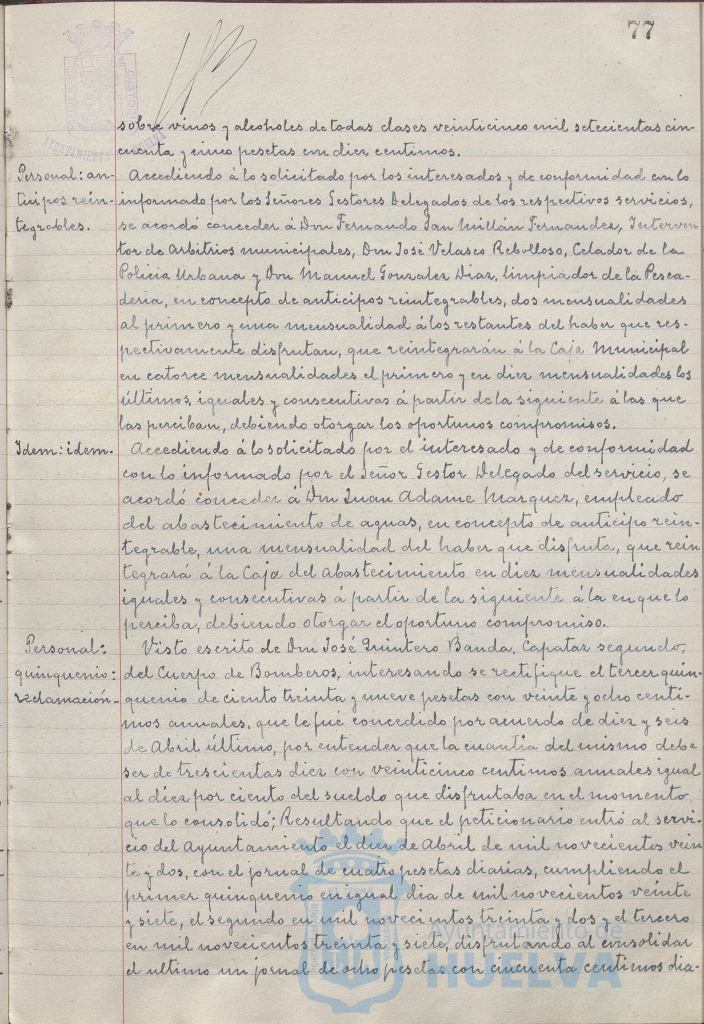 77
sobre vinos y alcoholes de todas clases veinticinco mil setecientas cin-
cuenta y cinco pesetas con diez centimos.
Personal: an-
ticipos rein-
tegrables.
Accediendo á lo solicitado por los interesados y de conformidad con lo
informado por los Señores Gestores Delegados de los respectivos servicios,
se acordó conceder á Don Fernando San Millán Fernandez, Interven-
tor de Arbitrios municipales, Don José Velasco Rebolloso, Celador de la
Policia Urbana y Don Manuel Gonzalez Diaz, limpiador de la Pesca-
deria, en concepto de anticipos reintegrables, dos mensualidades
al primero y una mensualidad á los restantes del haber que res-
pectivamente disfrutan, que reintegrarán á la Caja Municipal
en catorce mensualidades el primero y en diez mensualidades los
últimos, iguales y consecutivas á partir de la siguiente á las que
las perciban, debiendo otorgar los oportunos compromisos.
Idem: idem.
Accediendo á lo solicitado por el interesado y de conformidad
con lo informado por el Señor Gestor Delegado del servicio, se
acordó conceder á Don Juan Adame Marquez, empleado
del abastecimiento de aguas, en concepto de anticipo rein-
tegrable, una mensualidad del haber que disfruta, que rein
tegrará á la Caja del Abastecimiento en diez mensualidades
iguales y consecutivas á partir de la siguiente á la en que lo
perciba, debiendo otorgar el oportuno compromiso.
Personal:
quinquenio:
reclamación.
Visto escrito de Don José Quintero Banda, Capataz segundo,
del Cuerpo de Bomberos, interesando se rectifique el tercer quin-
quenio de ciento treinta y nueve pesetas con veinte y ocho centi-
mos anuales, que le fué concedido por acuerdo de diez y seis
de Abril último, por entender que la cuantia del mismo debe
ser de trescientas diez con veinticinco centimos anuales igual
al diez por ciento del sueldo que disfrutaba en el momento,
que lo consolidó; Resultando que el peticionario entró al servi-
cio del Ayuntamiento el diez de Abril de mil novecientos vein
te y dos, con el jornal de cuatro pesetas diarias, cumpliendo el
primer quinquenio en igual dia de mil novecientos veinte
y siete, el segundo en mil novecientos treinta y dos y el tercero
en mil novecientos treinta y siete, disfrutando al consolidar
el ultimo un jornal de ocho pesetas con cincuenta centimos dia-
Ayuntamiento de
HUELVA